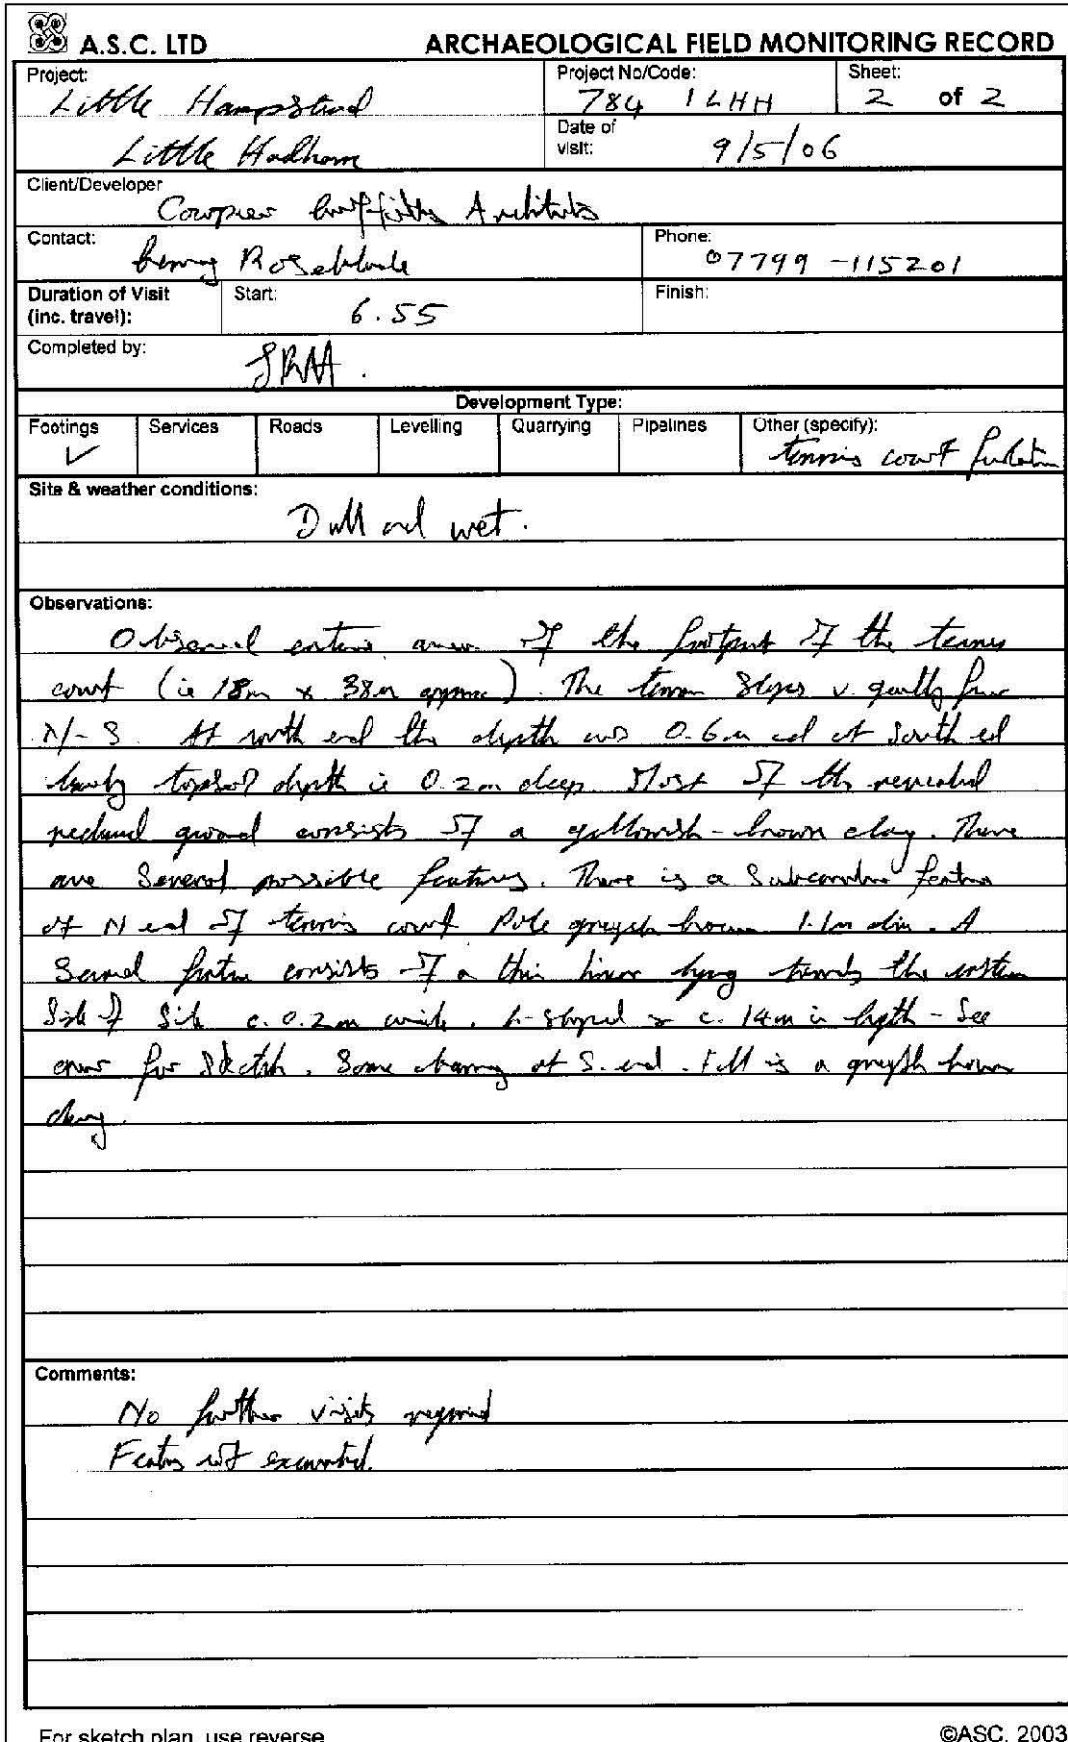 A.S.C. LTD
ARCHAEOLOGICAL FIELD MONITORING RECORD
Project:
Little Hampstead
Little Hadham
Project No/Code:
784 / LHH
Sheet:
2 of 2
Date of visit:
9/5/06
Client/Developer
Cowper Griffith Architects
Contact:
Phone:
07799-115201
Duration of Visit (inc. travel):
Start:
6.55
Finish:
Completed by:
Development Type:
Footings ✓
Services
Roads
Levelling
Quarrying
Pipelines
Other (specify):
tennis court
Site & weather conditions:
Dull and wet.
Observations:
Observed entire area of the footprint of the tennis
court (ie 18m x 38m approx). The terrain slopes v. gently from
N-S. At north end the depth was 0.6m and at South end
topsoil depth is 0.2m deep. Most of the revealed
ground consists of a yellowish-brown clay. There
are several possible features. There is a Subcircular feature
at N end of tennis court Pale greyish brown 1.1m dia. A
Second feature consists of a thin linear lying towards the
side of site c. 0.2m wide. L-shaped & c. 14m in length - See
over for sketch. Some at S. end. Fill is a greyish brown
clay.
Comments:
No further visits required
Features not excavated.
For sketch plan, use reverse
©ASC, 2003